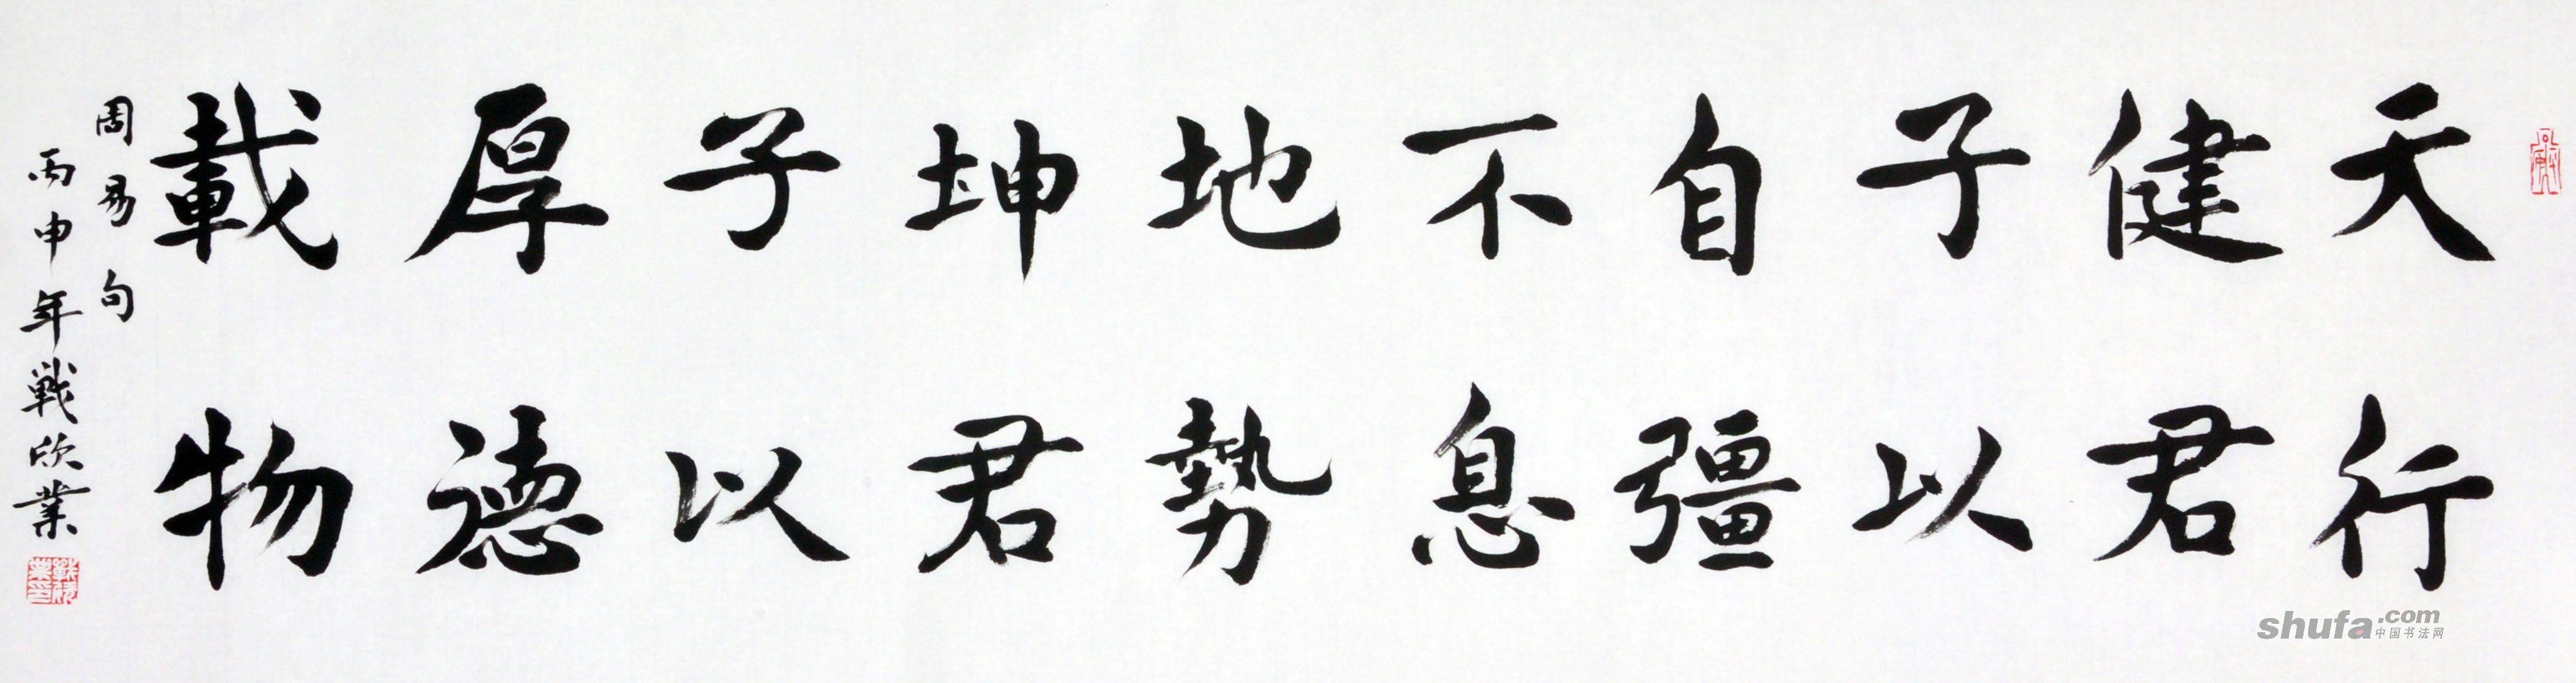 天行
健君
子以
自彊
不息
地勢
坤君
子以
厚德
載物
周易句
丙申年戰欣業
shufa.com
中国书法网